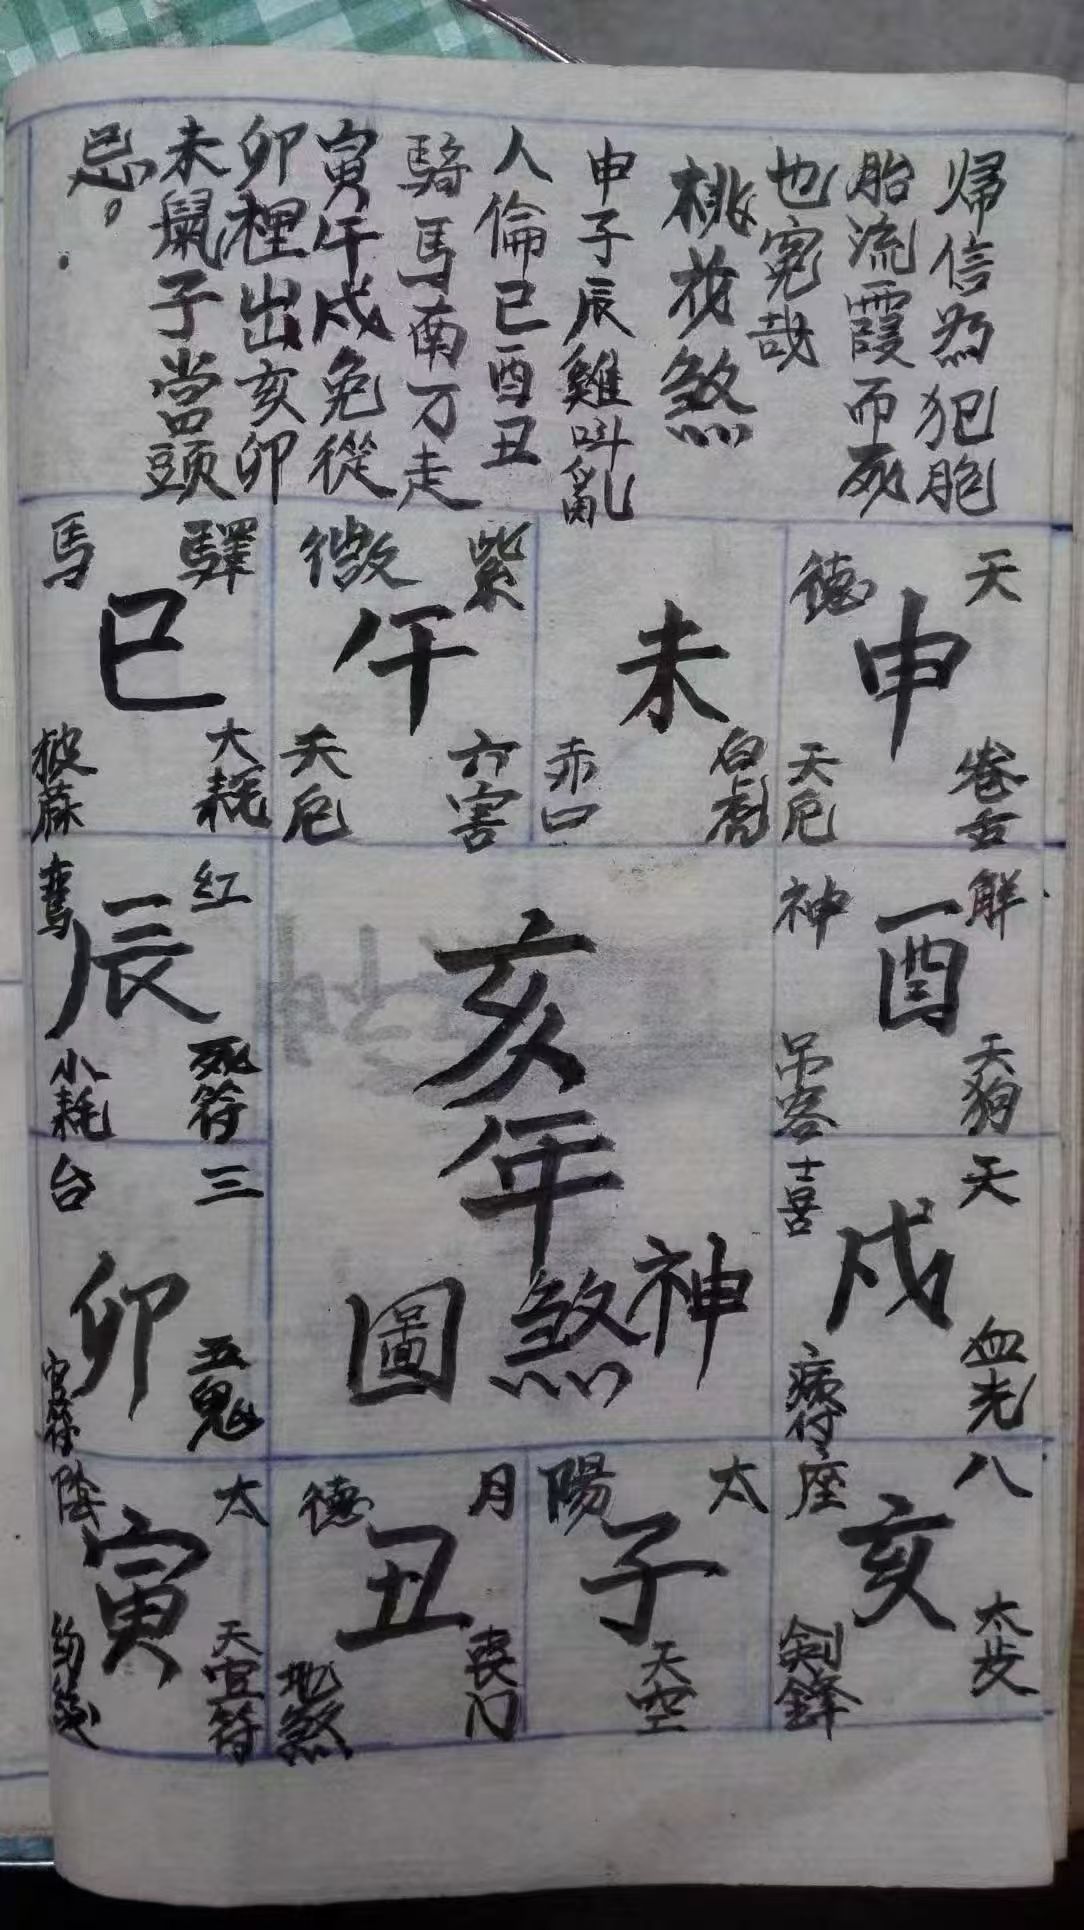 歸信為犯胞
胎流霞而死
也寃哉
桃花煞
申子辰雞叫亂
人倫巳酉丑
騎馬南方走
寅午戌免從
卯裡出亥卯
未鼠子當頭
忌。
天德
申
卷舌
天厄
未
白虎
赤口
紫微
午
六害
天厄
驛馬
巳
大耗
披麻
解神
酉
天狗
吊客
紅鸞
辰
死符
小耗
亥年
神煞圖
天喜
戌
血光
病符
三台
卯
五鬼
官符
八座
亥
太歩
劍鋒
太陽
子
天空
月德
丑
喪门
地煞
太陰
寅
天官符